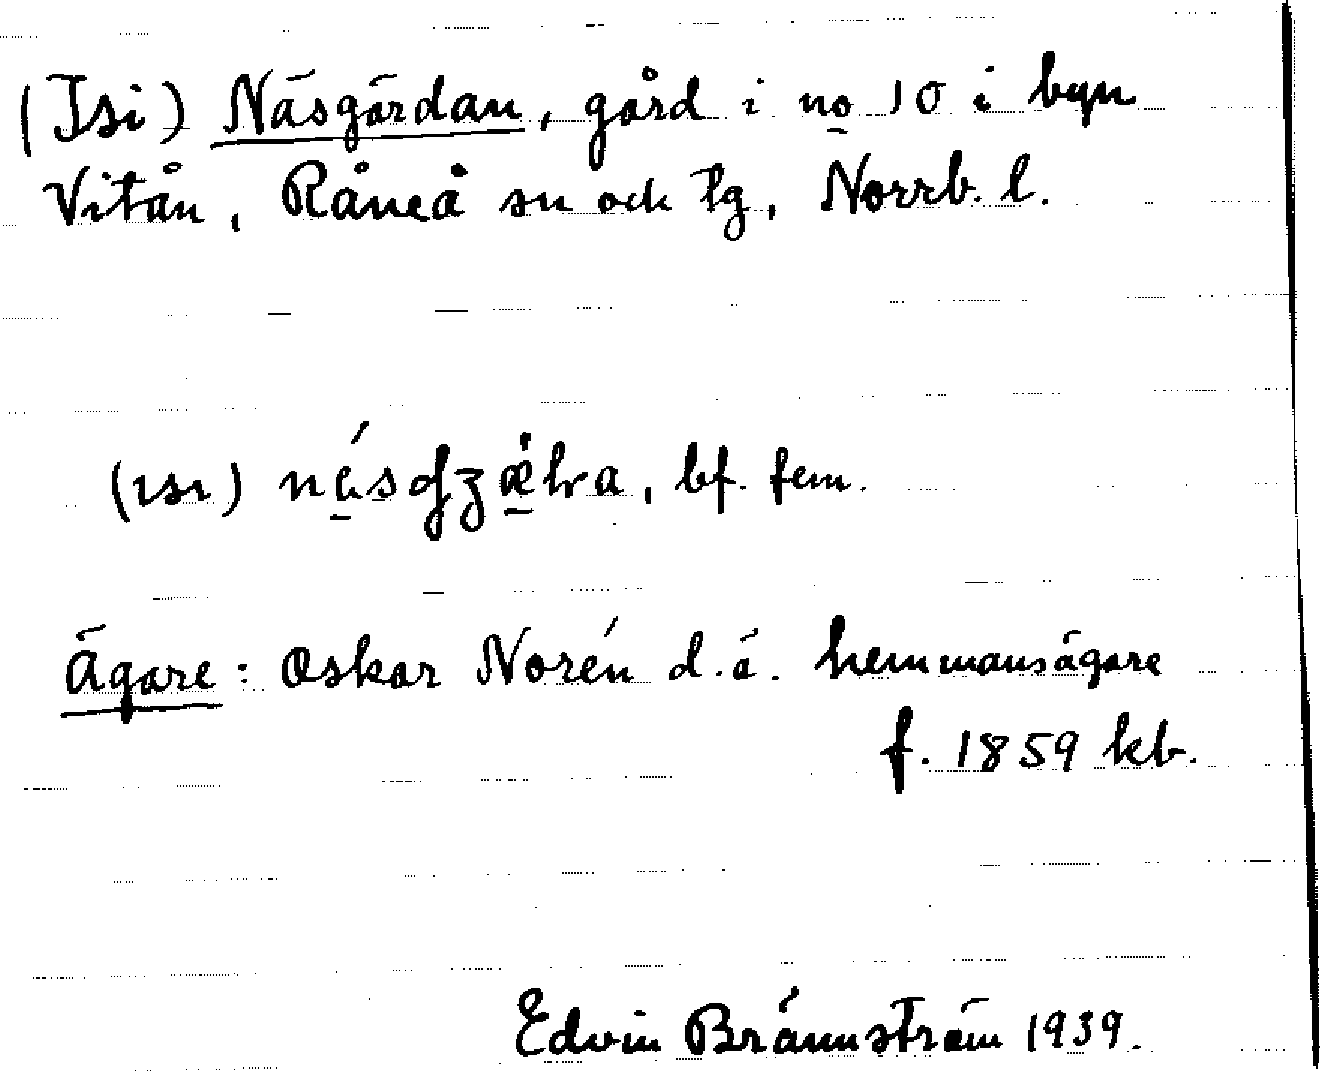 (Isi) Näsgärdan, gård i no 10 i byn
Vitån, Råneå sn och tg, Norrb. l.
(ısı) , bf. fem.
Ägare: Oskar Norén d.ä. hemmansägare
f. 1859 kb.
Edvin Brännström 1939.